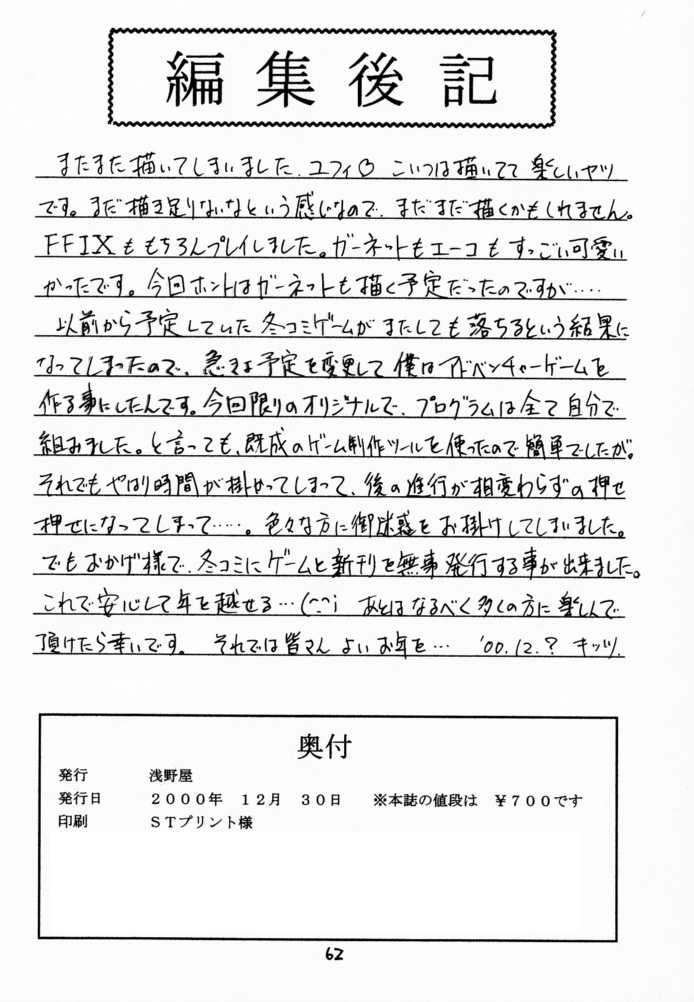 編集後記
またまた描いてしまいました、ユフィ♡ こいつは描いてて楽しいヤツ
です。まだ描き足りないなという感じなので、まだまだ描くかもしれません。
FFIXももちろんプレイしました。ガーネットもエーコもすっごい可愛い
かったです。今回ホントはガーネットも描く予定だったのですが……
以前から予定していた冬コミゲームがまたしても落ちるという結果に
なってしまったので、急きょ予定を変更して僕はアドベンチャーゲームを
作る事にしたんです。今回限りのオリジナルで、プログラムは全て自分で
組みました。と言っても、既成のゲーム制作ツールを使ったので簡単でしたが。
それでもやはり時間が掛かってしまって、後の進行が相変わらずの押せ
押せになってしまって……。色々な方に御迷惑をお掛けしてしまいました。
でもおかげ様で、冬コミにゲームと新刊を無事発行する事が出来ました。
これで安心して年を越せる…(^^;) あとはなるべく多くの方に楽しんで
頂けたら幸いです。 それでは皆さんよいお年を… '00.12.? キッツ.
奥付
発行 浅野屋
発行日 2000年 12月 30日 ※本誌の値段は ¥700です
印刷 STプリント様
62